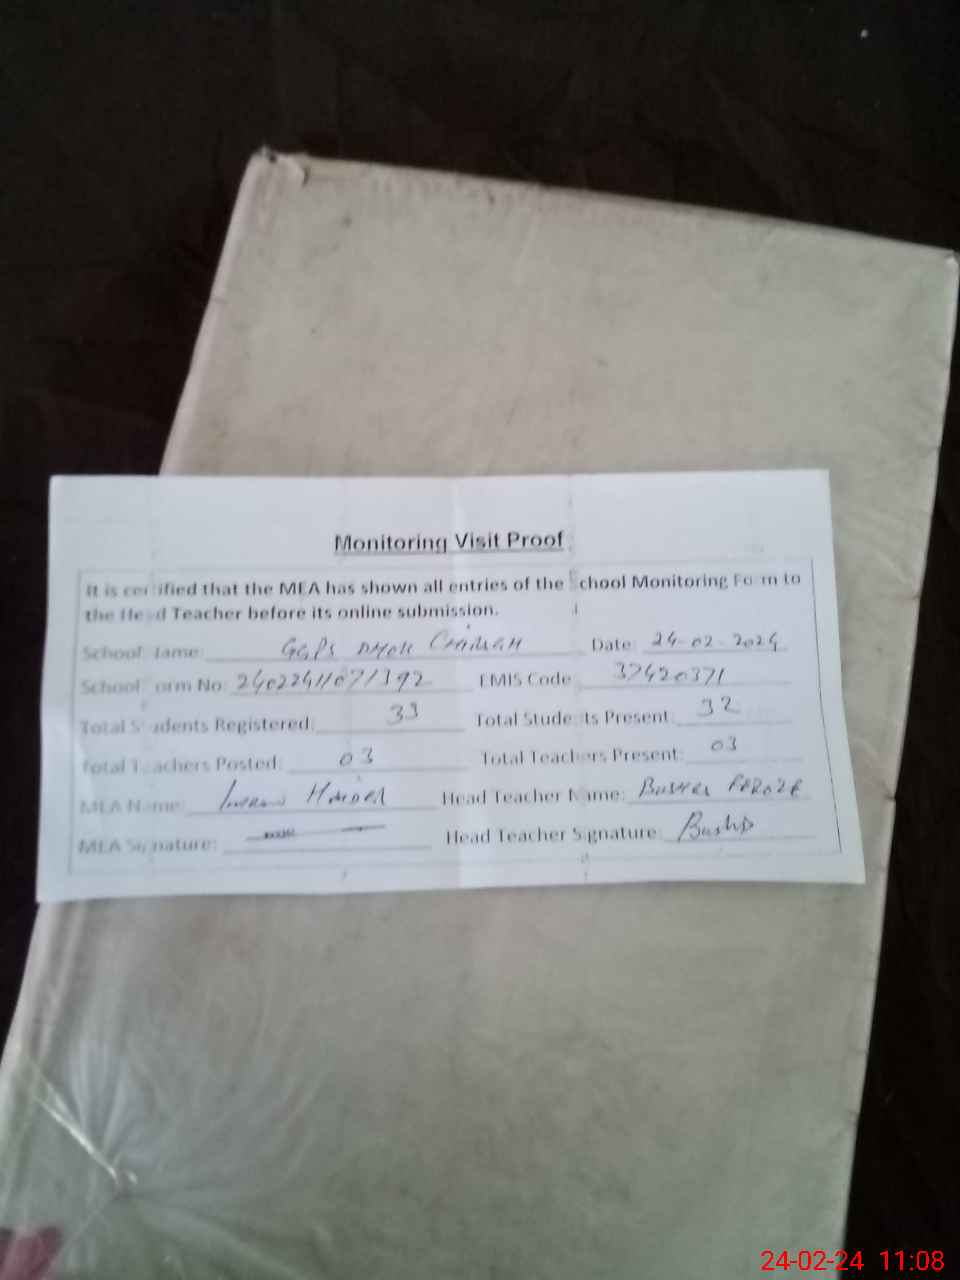 Monitoring Visit Proof
It is certified that the MEA has shown all entries of the School Monitoring Form to
the Head Teacher before its online submission.
School Name: GGPS DHOK Date: 24-02-2024
School Form No: 24022411071392 EMIS Code 37420371
Total Students Registered: 33 Total Students Present: 32
Total Teachers Posted: 03 Total Teachers Present: 03
MEA Name: Imran Haider Head Teacher Name: Bushra
MEA Signature: Head Teacher Signature: Bushra
24-02-24 11:08